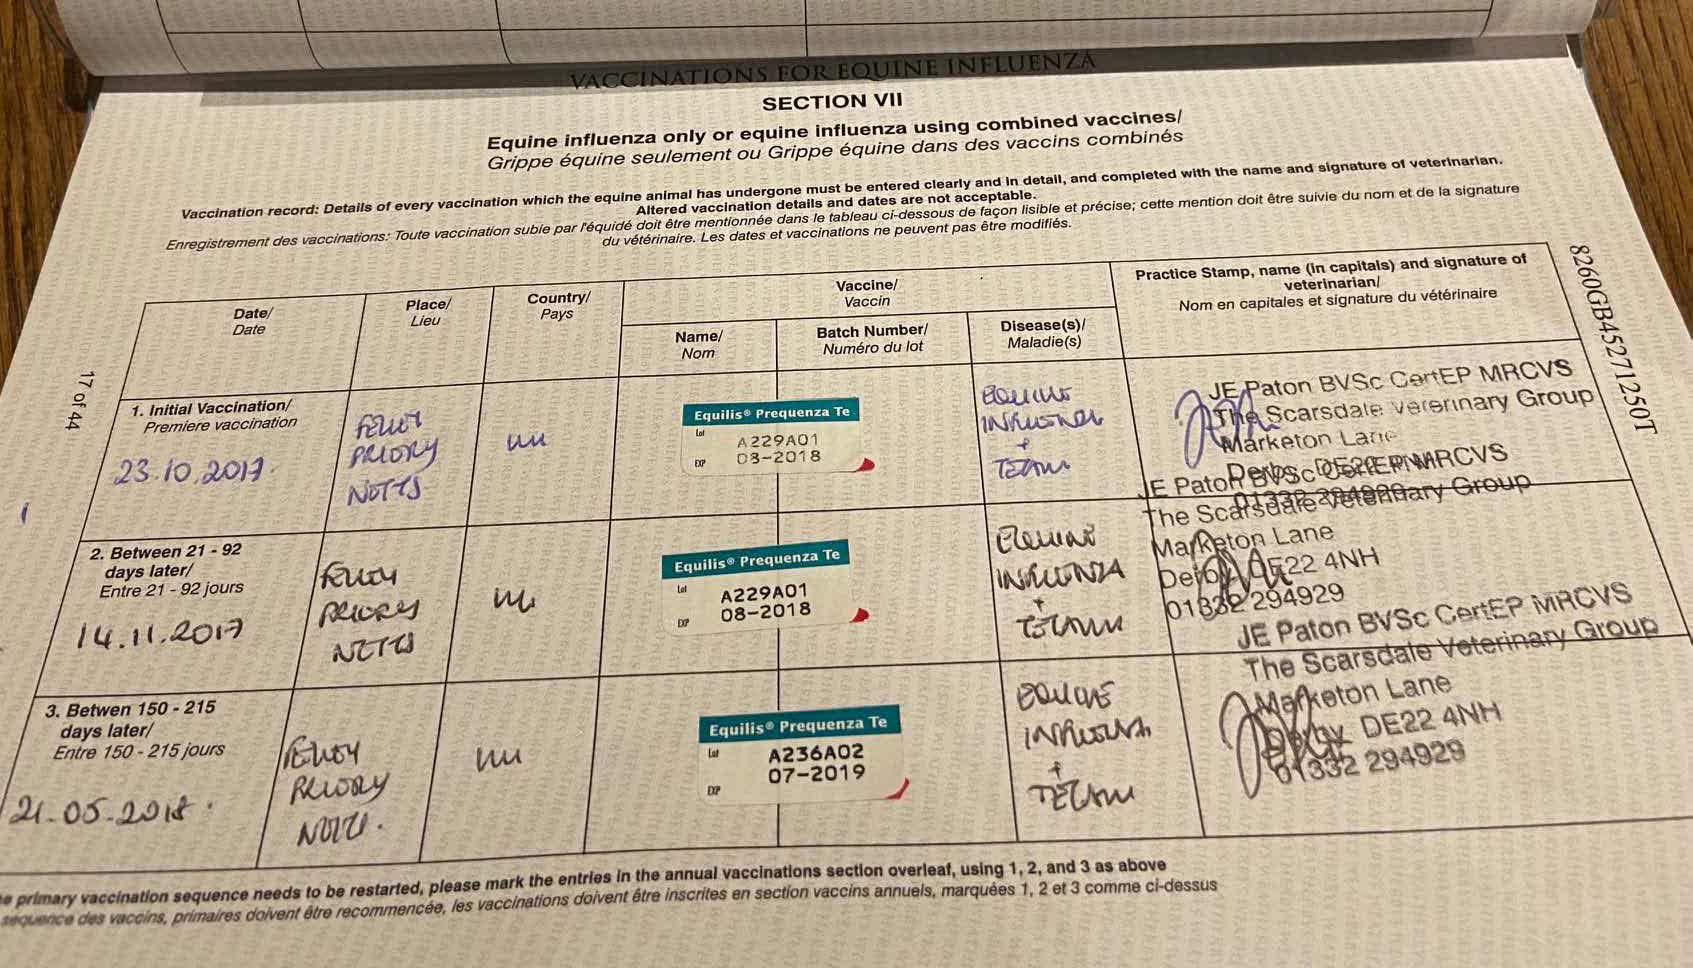 VACCINATIONS FOR EQUINE INFLUENZA
SECTION VII
Equine influenza only or equine influenza using combined vaccines/
Grippe équine seulement ou Grippe équine dans des vaccins combinés
Vaccination record: Details of every vaccination which the equine animal has undergone must be entered clearly and in detail, and completed with the name and signature of veterinarian.
Altered vaccination details and dates are not acceptable.
Enregistrement des vaccinations: Toute vaccination subie par l'équidé doit être mentionnée dans le tableau ci-dessous de façon lisible et précise; cette mention doit être suivie du nom et de la signature
du vétérinaire. Les dates et vaccinations ne peuvent pas être modifiés.
8260GB45271250T
17 of 44
Date/
Date
Place/
Lieu
Country/
Pays
Vaccine/
Vaccin
Name/
Nom
Batch Number/
Numéro du lot
Disease(s)/
Maladie(s)
Practice Stamp, name (in capitals) and signature of
veterinarian/
Nom en capitales et signature du vétérinaire
1. Initial Vaccination/
Premiere vaccination
23.10.2017.
PRIORY
NOTTS
Equilis® Prequenza Te
Lot
A229A01
EXP
08-2018
EQUINE
INFLUENZA
+
JE Paton BVSc CertEP MRCVS
The Scarsdale Veterinary Group
Marketon Lane
2. Between 21 - 92
days later/
Entre 21 - 92 jours
14.11.2017
PRIORY
NOTTS
Equilis® Prequenza Te
Lot
A229A01
EXP
08-2018
EQUINE
INFLUENZA
+
JE Paton BVSc CertEP MRCVS
The Scarsdale Veterinary Group
Marketon Lane
Derby DE22 4NH
01332 294929
3. Betwen 150 - 215
days later/
Entre 150 - 215 jours
21.05.2018.
PRIORY
Equilis® Prequenza Te
Lot
A236A02
07-2019
EXP
EQUINE
INFLUENZA
+
JE Paton BVSc CertEP MRCVS
The Scarsdale Veterinary Group
Marketon Lane
Derby DE22 4NH
01332 294929
primary vaccination sequence needs to be restarted, please mark the entries in the annual vaccinations section overleaf, using 1, 2, and 3 as above
sequence des vaccins, primaires doivent être recommencée, les vaccinations doivent être inscrites en section vaccins annuels, marquées 1, 2 et 3 comme ci-dessus